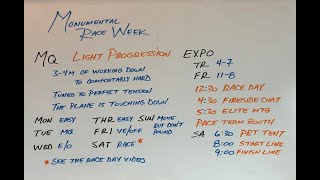 MONUMENTAL
RACE WEEK
MQ LIGHT PROGRESSION
3-4M OF WORKING DOWN
TO COMFORTABLY HARD
TUNED TO PERFECT TENSION
THE PLANE IS TOUCHING DOWN
MON EASY THR EASY SUN MOVE
BUT DON'T
POUND
TUE MQ FRI VE/OFF
WED E/O SAT RACE*
*SEE THE RACE DAY VIDEO
EXPO
TR 4-7
FR 11-8
12:30 RACE DAY
4:30 FIRESIDE CHAT
5:30 ELITE MTG
PACE TEAM BOOTH
SA 6:30 PRT TENT
8:00 START LINE
9:00 FINISH LINE